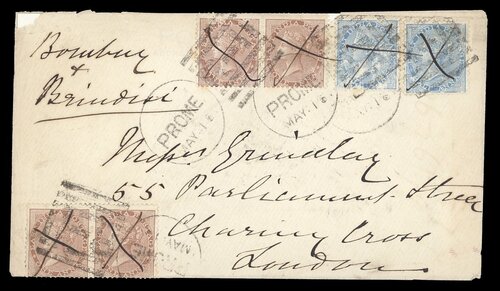 Bombay
&
Brindisi
PROME
MAY 16
PROME
MAY 16
Messrs Grindlay
55 Parliament Street
Charing Cross
London.
MAY
INDIA